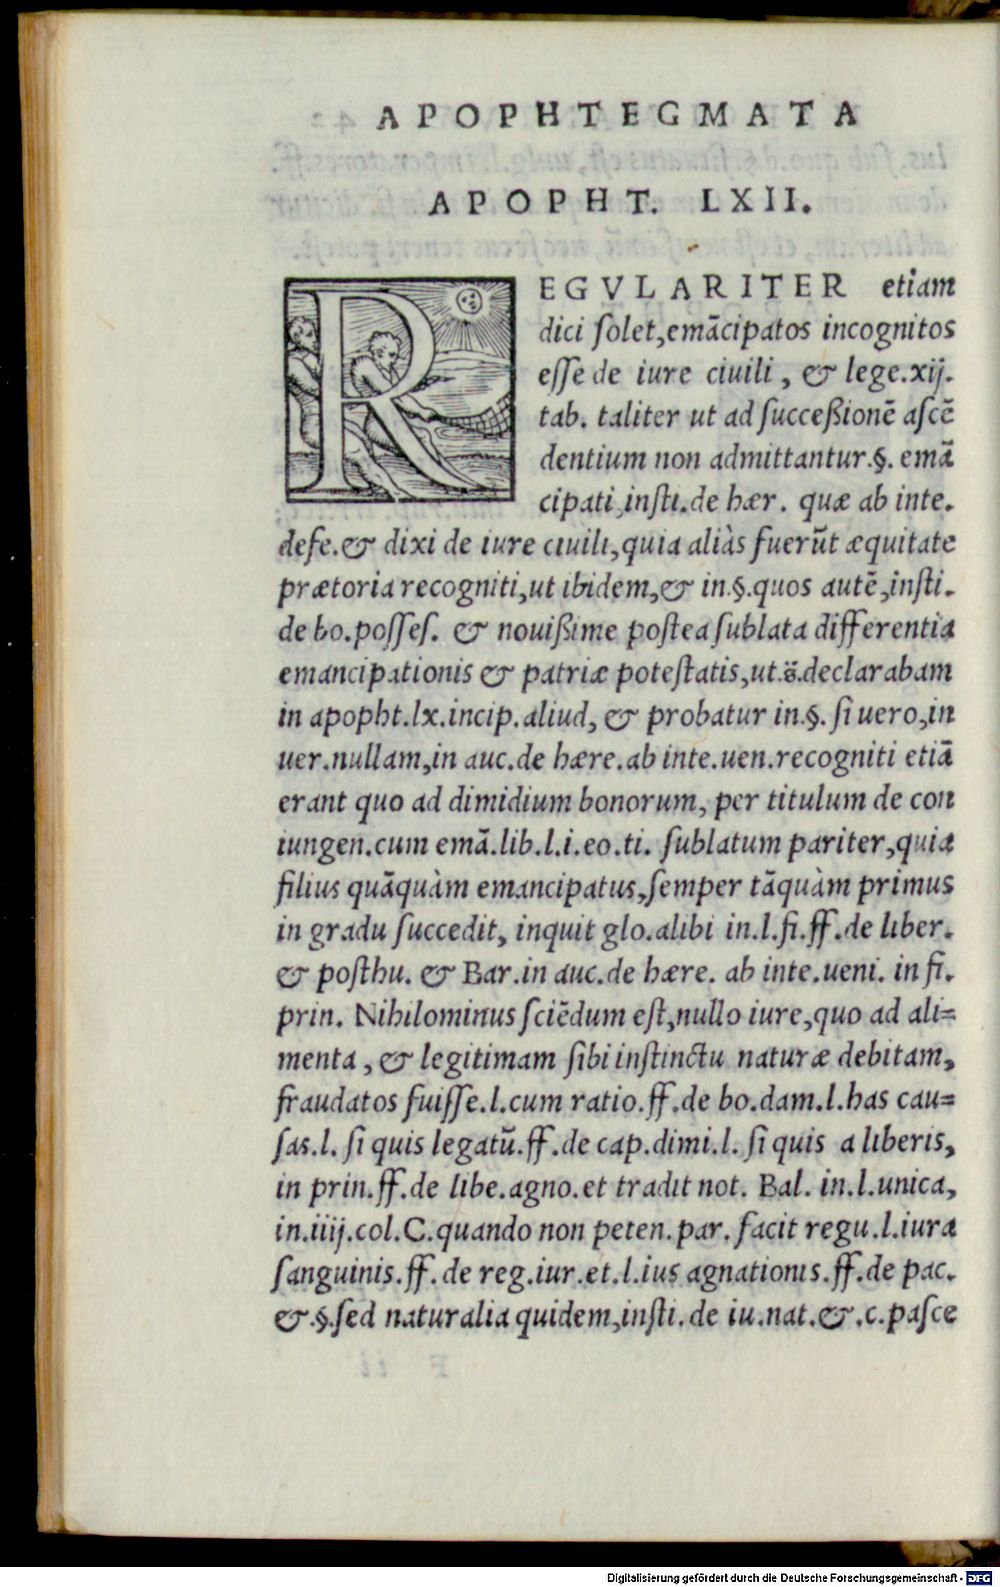 APOPHTEGMATA
APOPHT. LXII.
REGVLARITER etiam
dici ſolet,emācipatos incognitos
eſſe de iure ciuili, & lege.xij.
tab. taliter ut ad ſucceßionē aſcē
dentium non admittantur.§. emā
cipati,inſti.de hær. quæ ab inte.
defe.& dixi de iure ciuili,quia aliàs fuerūt æquitate
prætoria recogniti,ut ibidem,& in.§.quos autē,inſti.
de bo.poſſeſ. & nouißime poſtea ſublata differentia
emancipationis & patriæ poteſtatis,ut.s̈.declarabam
in apopht.lx.incip.aliud, & probatur in.§. ſi uero,in
uer.nullam,in auc.de hære.ab inte.uen.recogniti etiā
erant quo ad dimidium bonorum, per titulum de con
iungen.cum emā.lib.l.i.eo.ti. ſublatum pariter,quia
filius quāquàm emancipatus,ſemper tāquàm primus
in gradu ſuccedit, inquit glo.alibi in.l.fi.ff.de liber.
& poſthu. & Bar.in auc.de hære. ab inte.ueni. in fi.
prin. Nihilominus ſciēdum eſt,nullo iure,quo ad ali=
menta, & legitimam ſibi inſtinctu naturæ debitam,
fraudatos fuiſſe.l.cum ratio.ff.de bo.dam.l.has cau=
ſas.l. ſi quis legatū.ff.de cap.dimi.l. ſi quis a liberis,
in prin.ff.de libe.agno.et tradit not. Bal. in.l.unica,
in.iiij.col.C.quando non peten.par. facit regu.l.iura
ſanguinis.ff. de reg.iur.et.l.ius agnationis.ff.de pac.
&.§.ſed naturalia quidem,inſti.de iu.nat.&.c.paſce
Digitalisierung gefördert durch die Deutsche Forschungsgemeinschaft - DFG